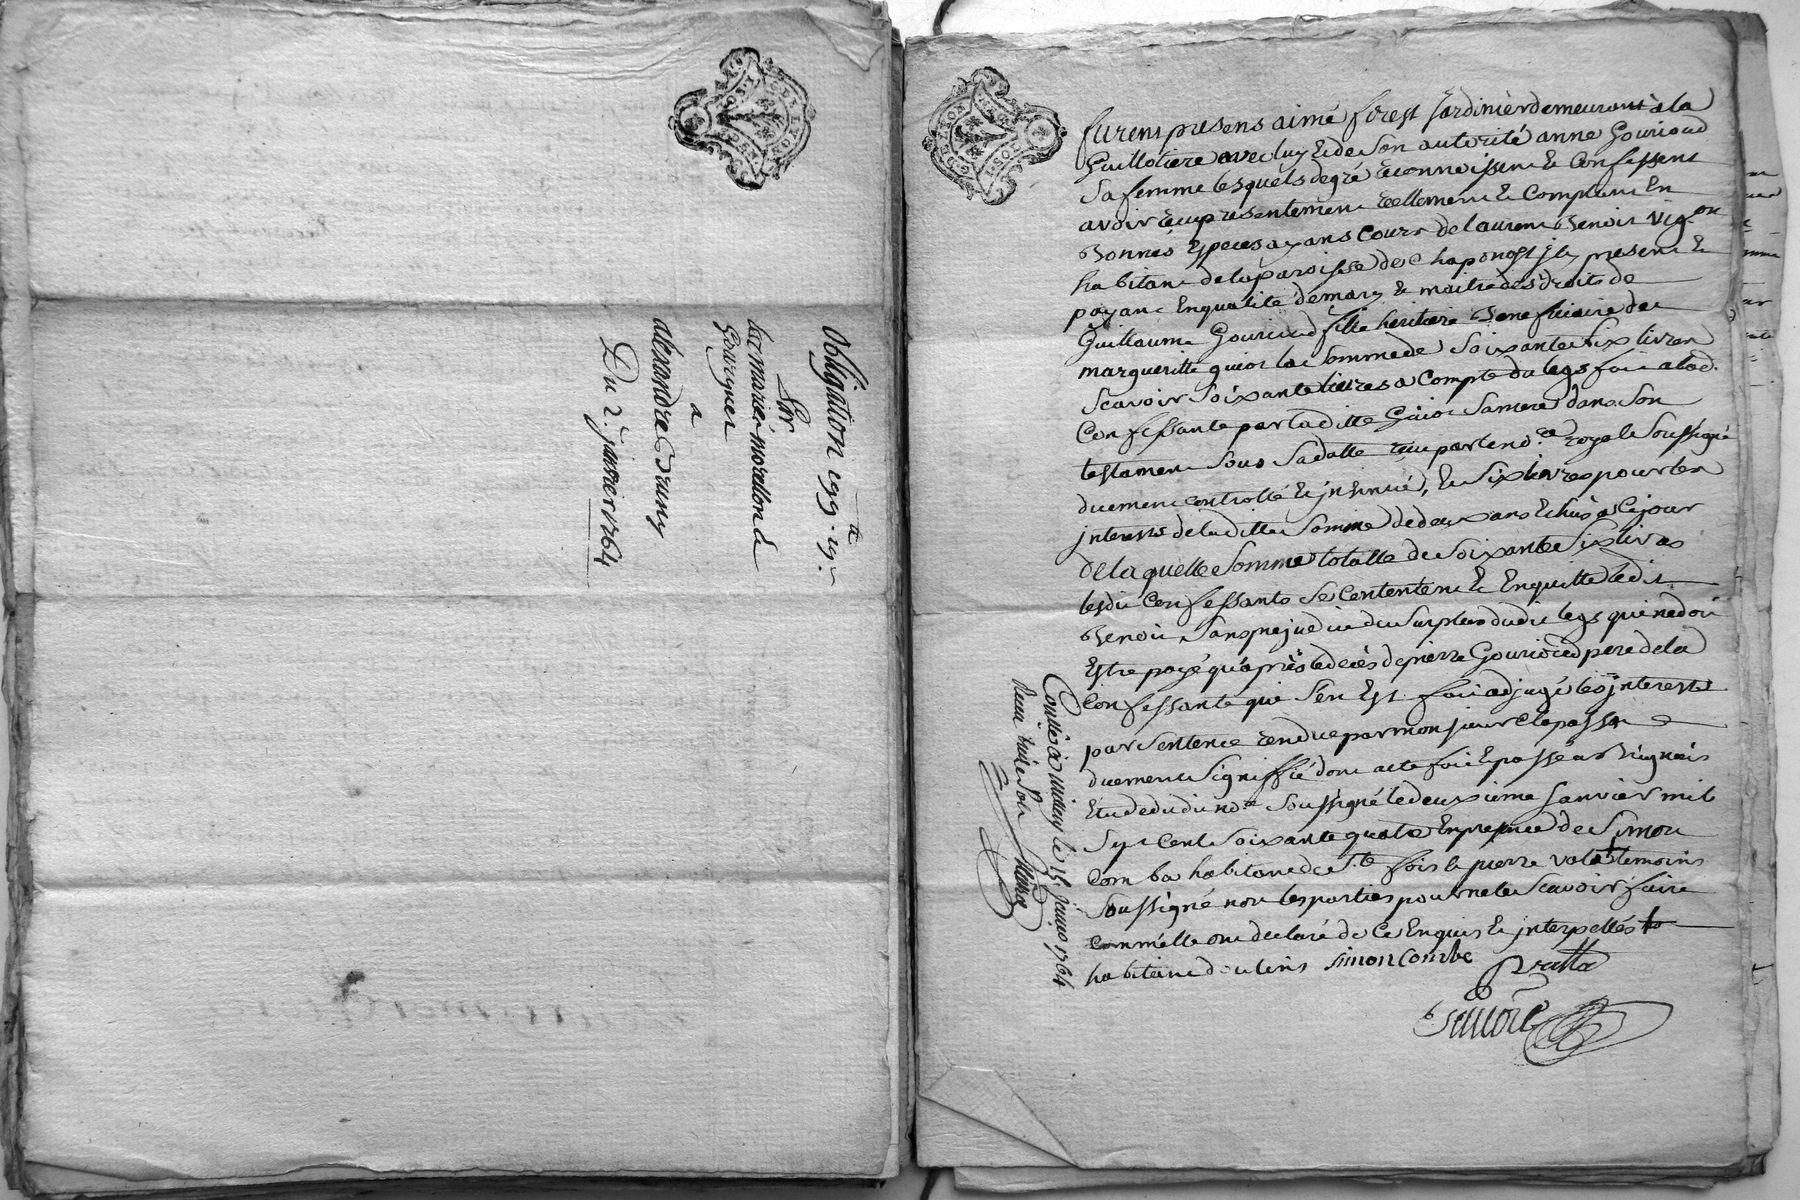 Obligation
Par
a
alexandre
Du 2. janvier 1764
furent presens aimé forest Jardinier demeurant a la
Guillotiere avec luy et de son autorité anne Gourioud
sa femme lesquels de gré reconnoissent et Confessent
avoir reçu presentement reellement et Comptant En
Bonnes Especes ayans Cours de laurent Benoit vig.on
habitant de la paroisse de Chaponost jcy present et
payant En qualité de mary et maitre des droits de
Guillaume Gourioud fille heritiere Beneficiaire de
margueritte guiot la somme de soixante six livres
scavoir soixante livres a Compte du legs fait a lad.
Confessante par laditte Guiot sa mere dans son
testament sous sa datte reçu par le no.re royal soussigné
duement controllé et jnsinué, et six livres pour les
jnterets de laditte somme de deux ans Echus a Ce jour
de laquelle somme totalle de soixante six livres
lesdits Confessants se Contentent et En quitte ledit
Benoit sans prejudice du surplus dudit legs qui ne doit
Estre payé qu'apres le decés de pierre Gourioud pere de la
Confessante qui s'en Est fait adjuger les jnterests
par sentence rendue par monsieur
duement signiffié dont acte fait et passé a Brignais
Etude dudit no.re soussigné le deuxieme Janvier mil
sept cent soixante quatre En presence de simon
Comba habitant de s.te foix et pierre valla temoins
soussigné non les parties pour ne le scavoir faire
comme elle ont declaré de Ce Enquis et jnterpellés
habitant doulins simon Combe P valla
Controllé a le 15. janv. 1764
Reçu